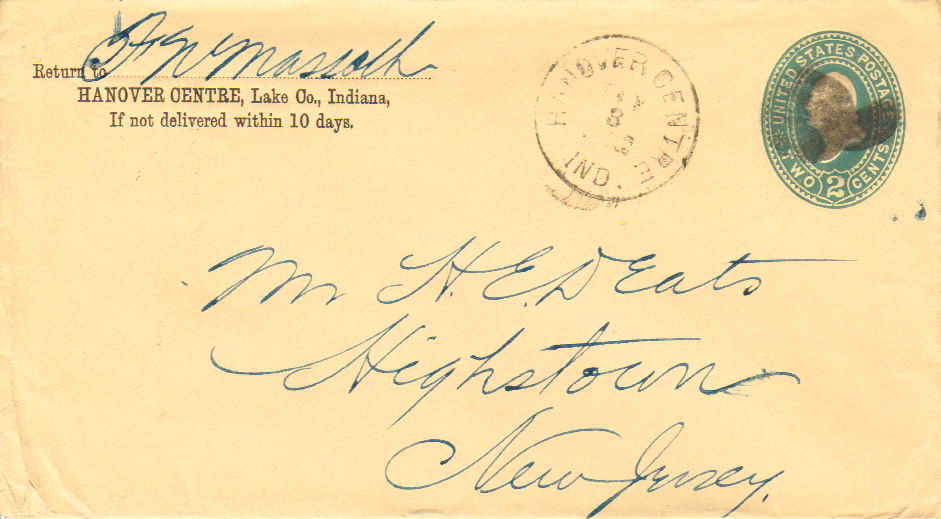 Return to
HANOVER CENTRE, Lake Co., Indiana,
If not delivered within 10 days.
HANOVER CENTRE
8
IND.
UNITED STATES POSTAGE
TWO 2 CENTS
Mr H. E. Deats
Highstown
New Jersey.